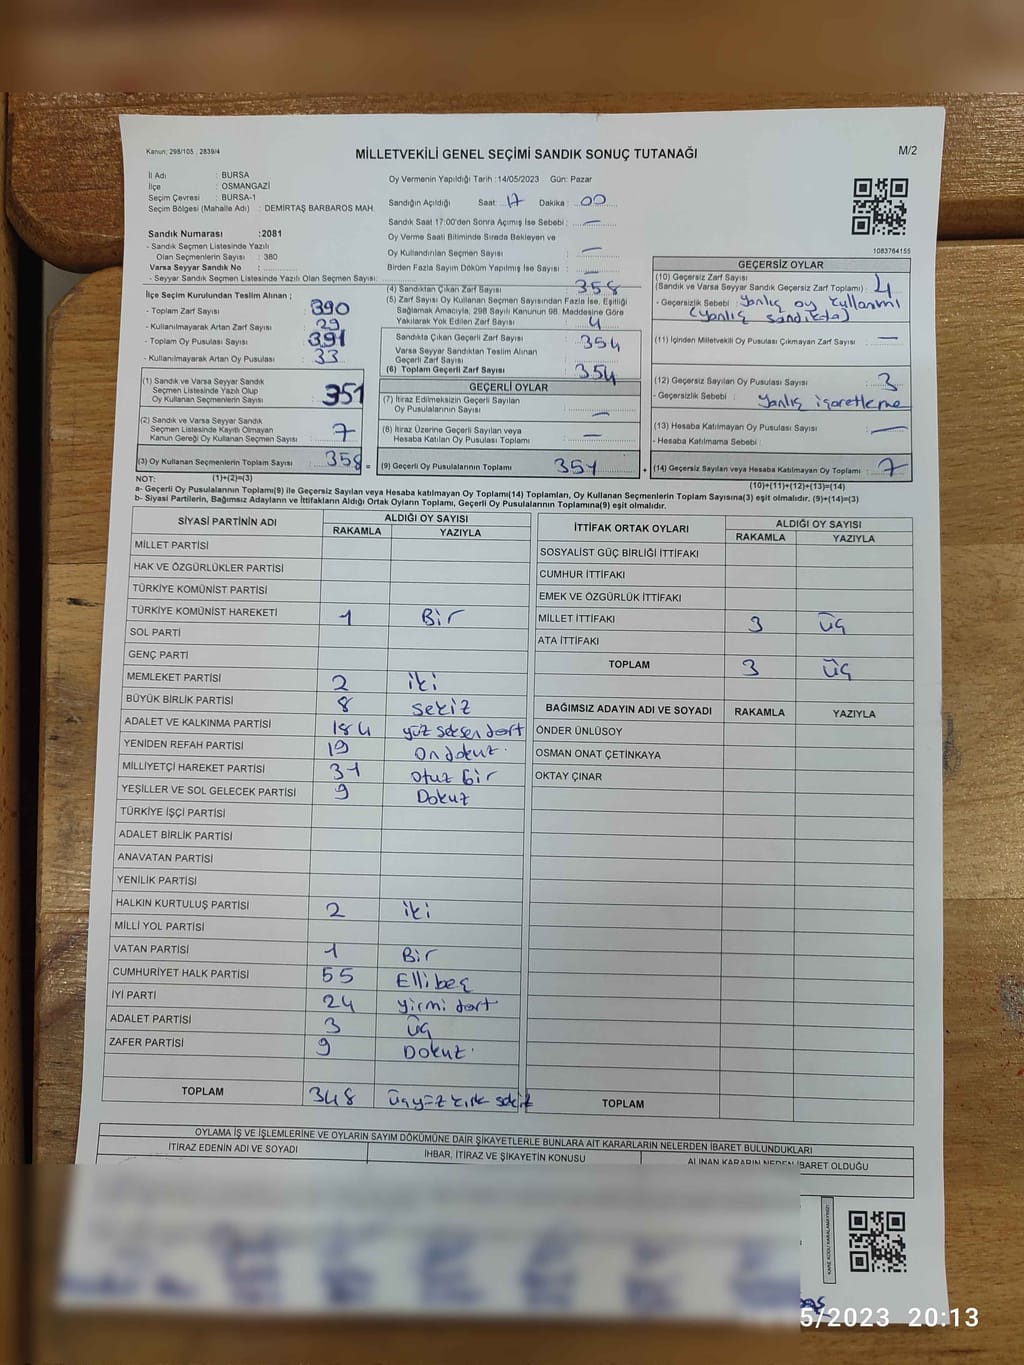 Kanun; 298/105 , 2839/4
MİLLETVEKİLİ GENEL SEÇİMİ SANDIK SONUÇ TUTANAĞI
M/2
İl Adı : BURSA
İlçe : OSMANGAZİ
Seçim Çevresi : BURSA-1
Seçim Bölgesi (Mahalle Adı) : DEMİRTAŞ BARBAROS MAH.
Sandık Numarası :2081
- Sandık Seçmen Listesinde Yazılı
Olan Seçmenlerin Sayısı : 380
Varsa Seyyar Sandık No :
- Seyyar Sandık Seçmen Listesinde Yazılı Olan Seçmen Sayısı:
İlçe Seçim Kurulundan Teslim Alınan ;
- Toplam Zarf Sayısı : 390
- Kullanılmayarak Artan Zarf Sayısı : 29
- Toplam Oy Pusulası Sayısı : 391
- Kullanılmayarak Artan Oy Pusulası : 33
(1) Sandık ve Varsa Seyyar Sandık
Seçmen Listesinde Yazılı Olup
Oy Kullanan Seçmenlerin Sayısı : 351
(2) Sandık ve Varsa Seyyar Sandık
Seçmen Listesinde Kayıtlı Olmayan
Kanun Gereği Oy Kullanan Seçmen Sayısı : 7
(3) Oy Kullanan Seçmenlerin Toplam Sayısı : 358 =
Oy Vermenin Yapıldığı Tarih :14/05/2023 Gün: Pazar
Sandığın Açıldığı Saat: 17 Dakika : 00
Sandık Saat 17:00'den Sonra Açımış İse Sebebi : —
Oy Verme Saati Bitiminde Sırada Bekleyen ve
Oy Kullandırılan Seçmen Sayısı : —
Birden Fazla Sayım Döküm Yapılmış İse Sayısı : —
(4) Sandıktan Çıkan Zarf Sayısı : 358
(5) Zarf Sayısı Oy Kullanan Seçmen Sayısından Fazla İse, Eşitliği
Sağlamak Amacıyla, 298 Sayılı Kanunun 98. Maddesine Göre
Yakılarak Yok Edilen Zarf Sayısı : 4
Sandıkta Çıkan Geçerli Zarf Sayısı : 354
Varsa Seyyar Sandıktan Teslim Alınan
Geçerli Zarf Sayısı :
(6) Toplam Geçerli Zarf Sayısı : 354
GEÇERLİ OYLAR
(7) İtiraz Edilmeksizin Geçerli Sayılan
Oy Pusulalarının Sayısı : —
(8) İtiraz Üzerine Geçerli Sayılan veya
Hesaba Katılan Oy Pusulası Toplamı : —
(9) Geçerli Oy Pusulalarının Toplamı 351 +
1083764155
GEÇERSİZ OYLAR
(10) Geçersiz Zarf Sayısı
(Sandık ve Varsa Seyyar Sandık Geçersiz Zarf Toplamı) : 4
- Geçersizlik Sebebi : Yanlış oy kullanımı
(Yanlış sandıkta)
(11) İçinden Milletvekili Oy Pusulası Çıkmayan Zarf Sayısı: —
(12) Geçersiz Sayılan Oy Pusulası Sayısı : 3
- Geçersizlik Sebebi : Yanlış işaretleme
(13) Hesaba Katılmayan Oy Pusulası Sayısı : —
- Hesaba Katılmama Sebebi :
(14) Geçersiz Sayılan veya Hesaba Katılmayan Oy Toplamı : 7
NOT: (1)+(2)=(3)
(10)+(11)+(12)+(13)=(14)
a- Geçerli Oy Pusulalarının Toplamı(9) ile Geçersiz Sayılan veya Hesaba katılmayan Oy Toplamı(14) Toplamları, Oy Kullanan Seçmenlerin Toplam Sayısına(3) eşit olmalıdır. (9)+(14)=(3)
b- Siyasi Partilerin, Bağımsız Adayların ve İttifakların Aldığı Ortak Oyların Toplamı, Geçerli Oy Pusulalarının Toplamına(9) eşit olmalıdır.
SİYASİ PARTİNİN ADI ALDIĞI OY SAYISI
RAKAMLA YAZIYLA
MİLLET PARTİSİ
HAK VE ÖZGÜRLÜKLER PARTİSİ
TÜRKİYE KOMÜNİST PARTİSİ
TÜRKİYE KOMÜNİST HAREKETİ 1 Bir
SOL PARTİ
GENÇ PARTİ
MEMLEKET PARTİSİ 2 iki
BÜYÜK BİRLİK PARTİSİ 8 sekiz
ADALET VE KALKINMA PARTİSİ 184 yüz seksen dört
YENİDEN REFAH PARTİSİ 19 on dokuz
MİLLİYETÇİ HAREKET PARTİSİ 31 otuz bir
YEŞİLLER VE SOL GELECEK PARTİSİ 9 Dokuz
TÜRKİYE İŞÇİ PARTİSİ
ADALET BİRLİK PARTİSİ
ANAVATAN PARTİSİ
YENİLİK PARTİSİ
HALKIN KURTULUŞ PARTİSİ 2 iki
MİLLİ YOL PARTİSİ
VATAN PARTİSİ 1 Bir
CUMHURİYET HALK PARTİSİ 55 Ellibeş
İYİ PARTİ 24 yirmi dört
ADALET PARTİSİ 3 üç
ZAFER PARTİSİ 9 Dokuz
TOPLAM 348 üçyüz kırk sekiz
İTTİFAK ORTAK OYLARI ALDIĞI OY SAYISI
RAKAMLA YAZIYLA
SOSYALİST GÜÇ BİRLİĞİ İTTİFAKI
CUMHUR İTTİFAKI
EMEK VE ÖZGÜRLÜK İTTİFAKI
MİLLET İTTİFAKI 3 üç
ATA İTTİFAKI
TOPLAM 3 üç
BAĞIMSIZ ADAYIN ADI VE SOYADI RAKAMLA YAZIYLA
ÖNDER ÜNLÜSOY
OSMAN ONAT ÇETİNKAYA
OKTAY ÇINAR
TOPLAM
OYLAMA İŞ VE İŞLEMLERİNE VE OYLARIN SAYIM DÖKÜMÜNE DAİR ŞİKAYETLERLE BUNLARA AİT KARARLARIN NELERDEN İBARET BULUNDUKLARI
İTİRAZ EDENİN ADI VE SOYADI İHBAR, İTİRAZ VE ŞİKAYETİN KONUSU ALINAN KARARIN NEDEN İBARET OLDUĞU
KARE KODU KARALAMAYINIZ!
5/2023 20:13